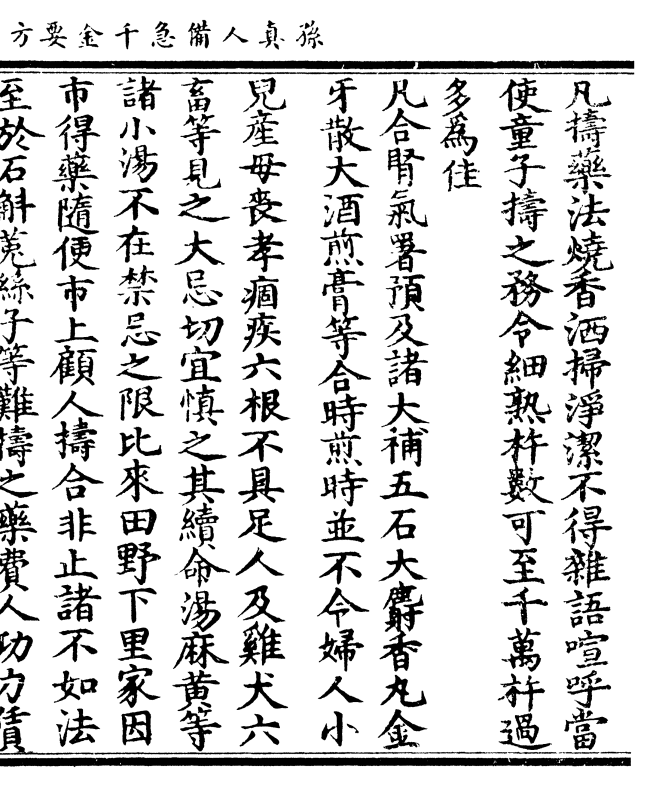 孫真人備急千金要方
凡擣藥法燒香洒掃淨潔不得雜語喧呼當
使童子擣之務令細熟杵數可至千萬杵過
多為佳
凡合腎氣署預及諸大補五石大麝香丸金
牙散大酒煎膏等合時煎時並不令婦人小
兒產母喪孝痼疾六根不具足人及雞犬六
畜等見之大忌切宜慎之其續命湯麻黃等
諸小湯不在禁忌之限比來田野下里家因
市得藥隨便市上顧人擣合非止諸不如法
至於石斛菟絲子等難擣之藥費人功力賃